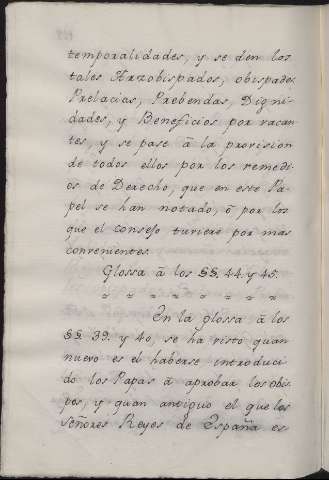 temporalidades, y se den los
tales Arzobispados, obispados,
Prelacias, Prebendas, Digni-
dades, y Beneficios por vacan-
tes, y se pase â la provision
de todos ellos por los remedi-
os de Derecho, que en este Pa-
pel se han notado, ô por los
que el consejo tuviere por mas
convenientes.
Glossa â los §§. 44. y 45.
En la glossa â los
§§. 39. y 40, se ha visto quan
nuevo es el haberse introduci-
do los Papas â aprobar los obis-
pos, y quan antiguo el que los
Señores Reyes de España es